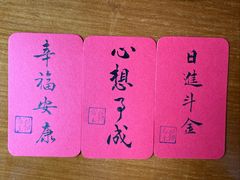 幸福安康
心想事成
日進斗金